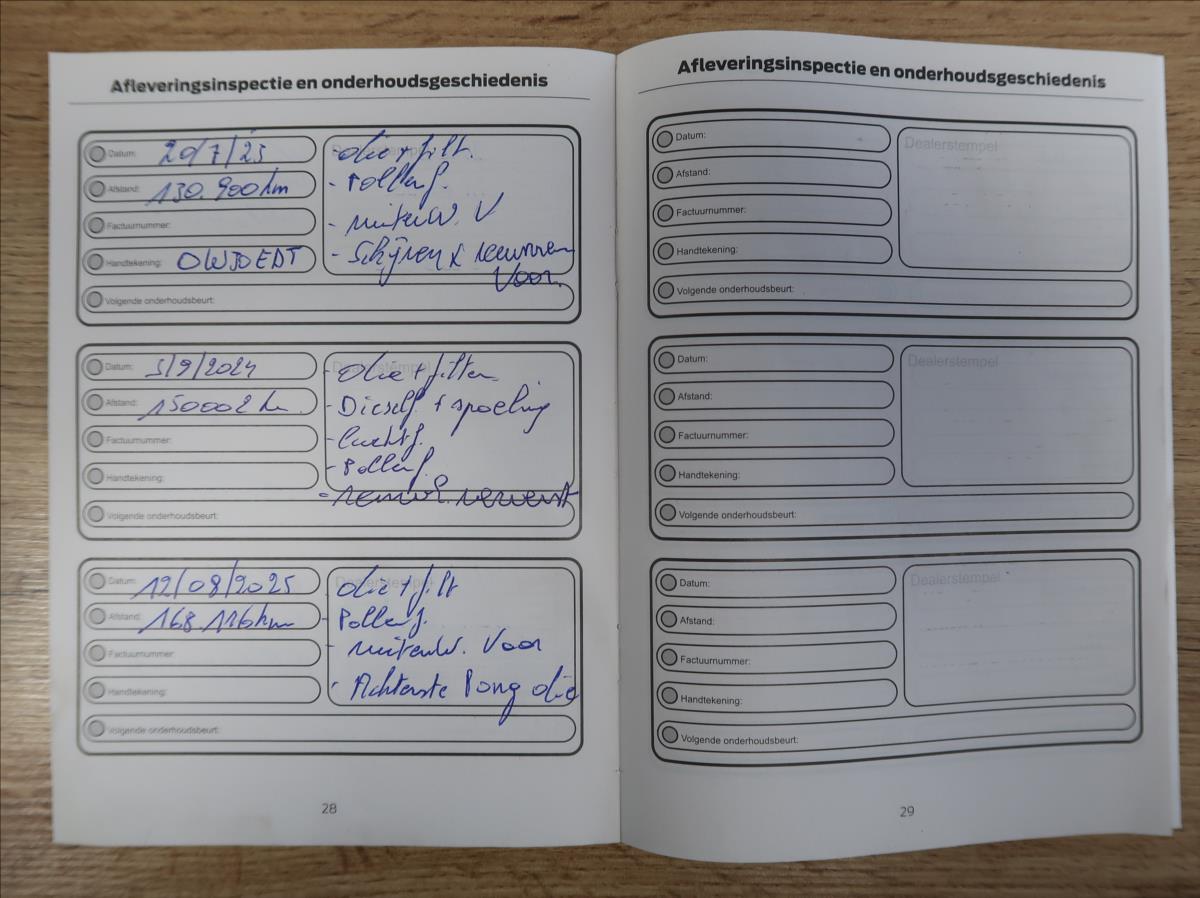 Afleveringsinspectie en onderhoudsgeschiedenis
Datum: 20/7/23
Afstand: 130.900 km
Factuurnummer:
Handtekening:
Volgende onderhoudsbeurt:
Dealerstempel
- olie + filt.
- Pollenf.
- ruitenw. V
- Schijven &
Voor.
Datum: 5/9/2024
Afstand: 150002 km
Factuurnummer:
Handtekening:
Volgende onderhoudsbeurt:
Dealerstempel
- olie + filter
- Dieself + spoeling
- luchtf.
- Pollenf.
- remvl. ververst
Datum: 12/08/2025
Afstand: 168.116 km
Factuurnummer:
Handtekening:
Volgende onderhoudsbeurt:
Dealerstempel
olie + filt
- Pollenf.
- ruitenw. Voor
- Achterste Pong olie
28
Afleveringsinspectie en onderhoudsgeschiedenis
Datum:
Afstand:
Factuurnummer:
Handtekening:
Volgende onderhoudsbeurt:
Dealerstempel
Datum:
Afstand:
Factuurnummer:
Handtekening:
Volgende onderhoudsbeurt:
Dealerstempel
Datum:
Afstand:
Factuurnummer:
Handtekening:
Volgende onderhoudsbeurt:
Dealerstempel
29